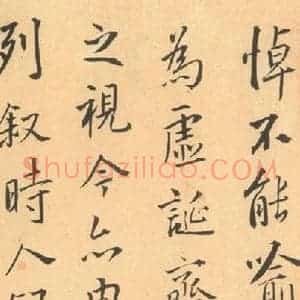 悼不能喻
為虛誕齊
之視今亦由
列叙時人
Shufaziliao.COM